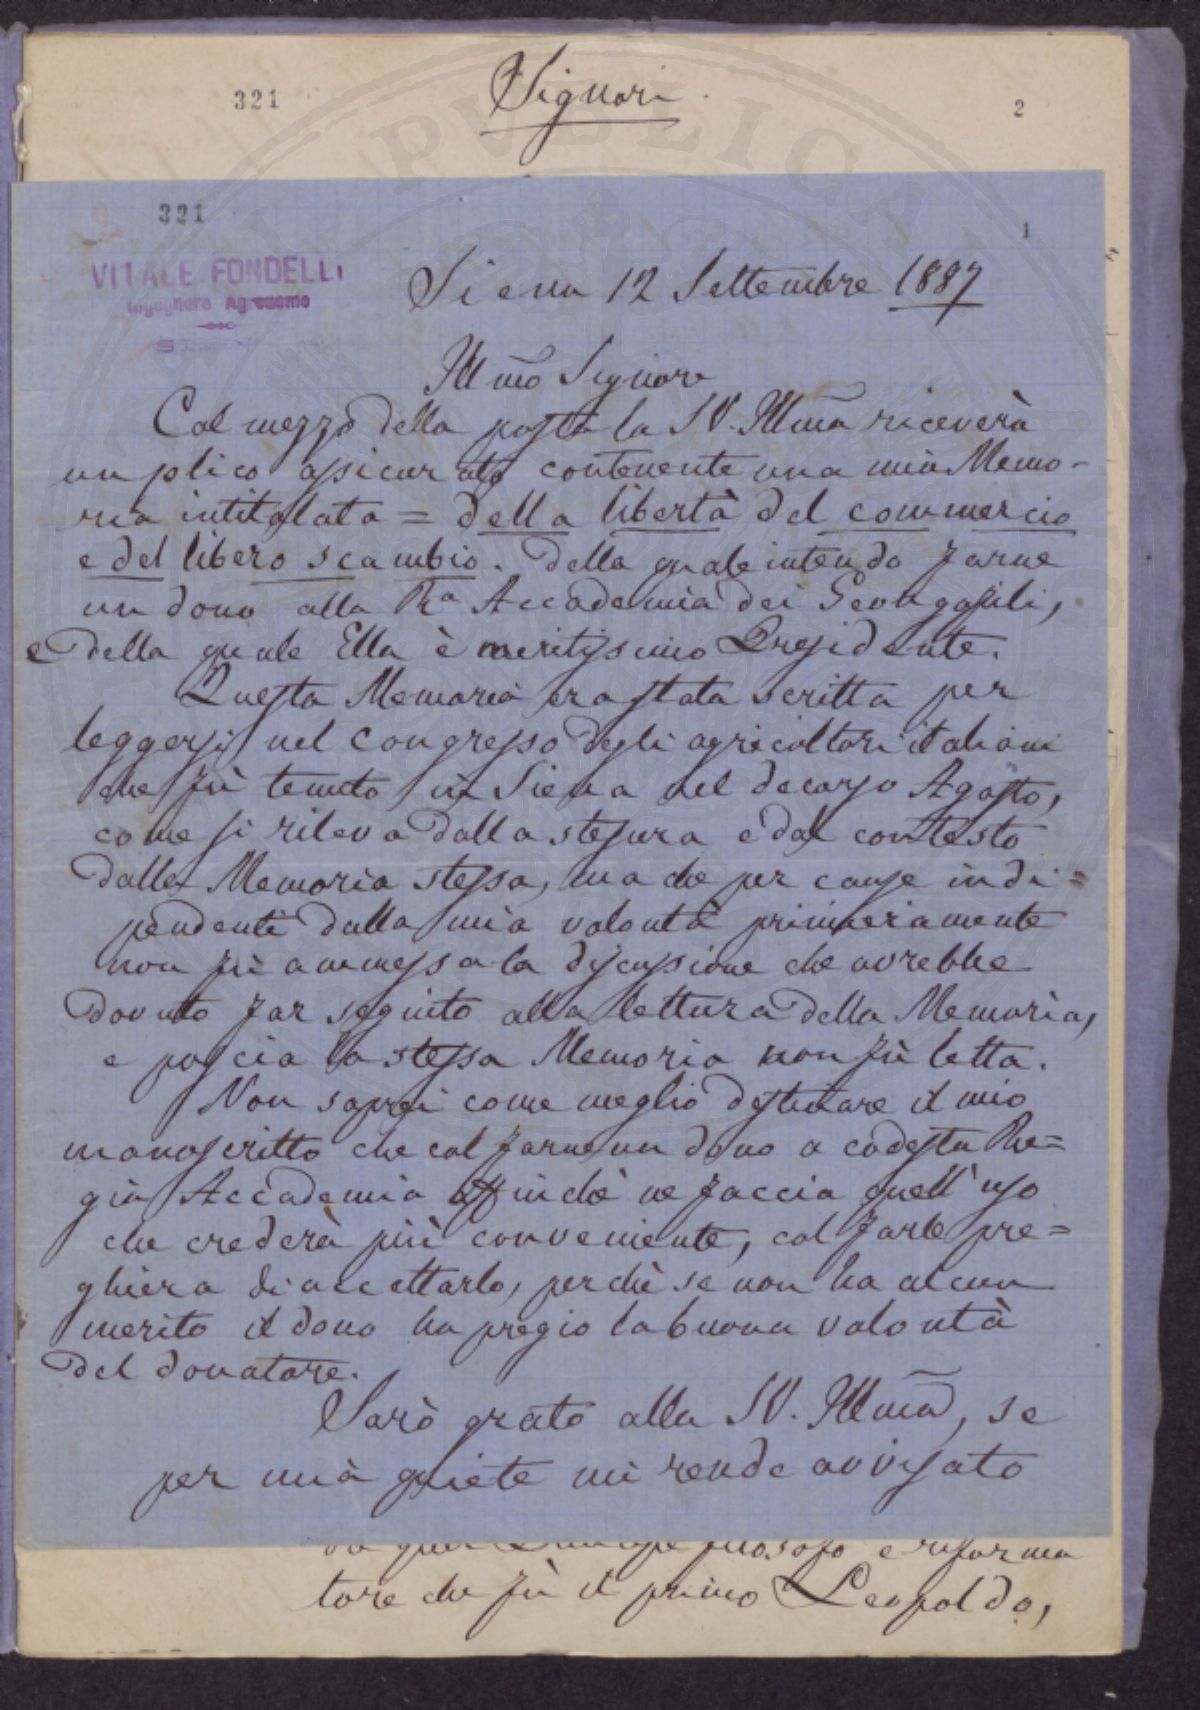 321
Signori.
2
321
1
VITALE FONDELLI
Ingegnere Agronomo
Siena 12 Settembre 1887
Ill.mo Signore
Col mezzo della posta la S.V. Ill.ma riceverà
un plico assicurato contenente una mia Memo-
ria intitolata = della libertà del commercio
e del libero scambio. Della quale intendo farne
un dono alla R.a Accademia dei Georgofili,
e della quale Ella è meritissimo Presidente.
Questa Memoria era stata scritta per
leggersi nel congresso degli agricoltori italiani
che fù tenuto in Siena nel decorso Agosto,
come si rileva dalla stesura e dal contesto
della Memoria stessa, ma che per cause indi=
pendenti dalla mia volontà primieramente
non fù ammessa la discussione che avrebbe
dovuto far seguito alla lettura della Memoria,
e poscia la stessa Memoria non fù letta.
Non saprei come meglio destinare il mio
manoscritto che col farne un dono a codesta Re=
gia Accademia affinchè ne faccia quell'uso
che crederà più conveniente, col farle pre=
ghiera di accettarlo, perchè se non ha alcun
merito il dono ha pregio la buona volontà
del donatore.
Sarò grato alla S.V. Ill.ma, se
per mia quiete mi rende avvisato
filosofo e riforma
tore che fù il primo Leopoldo,